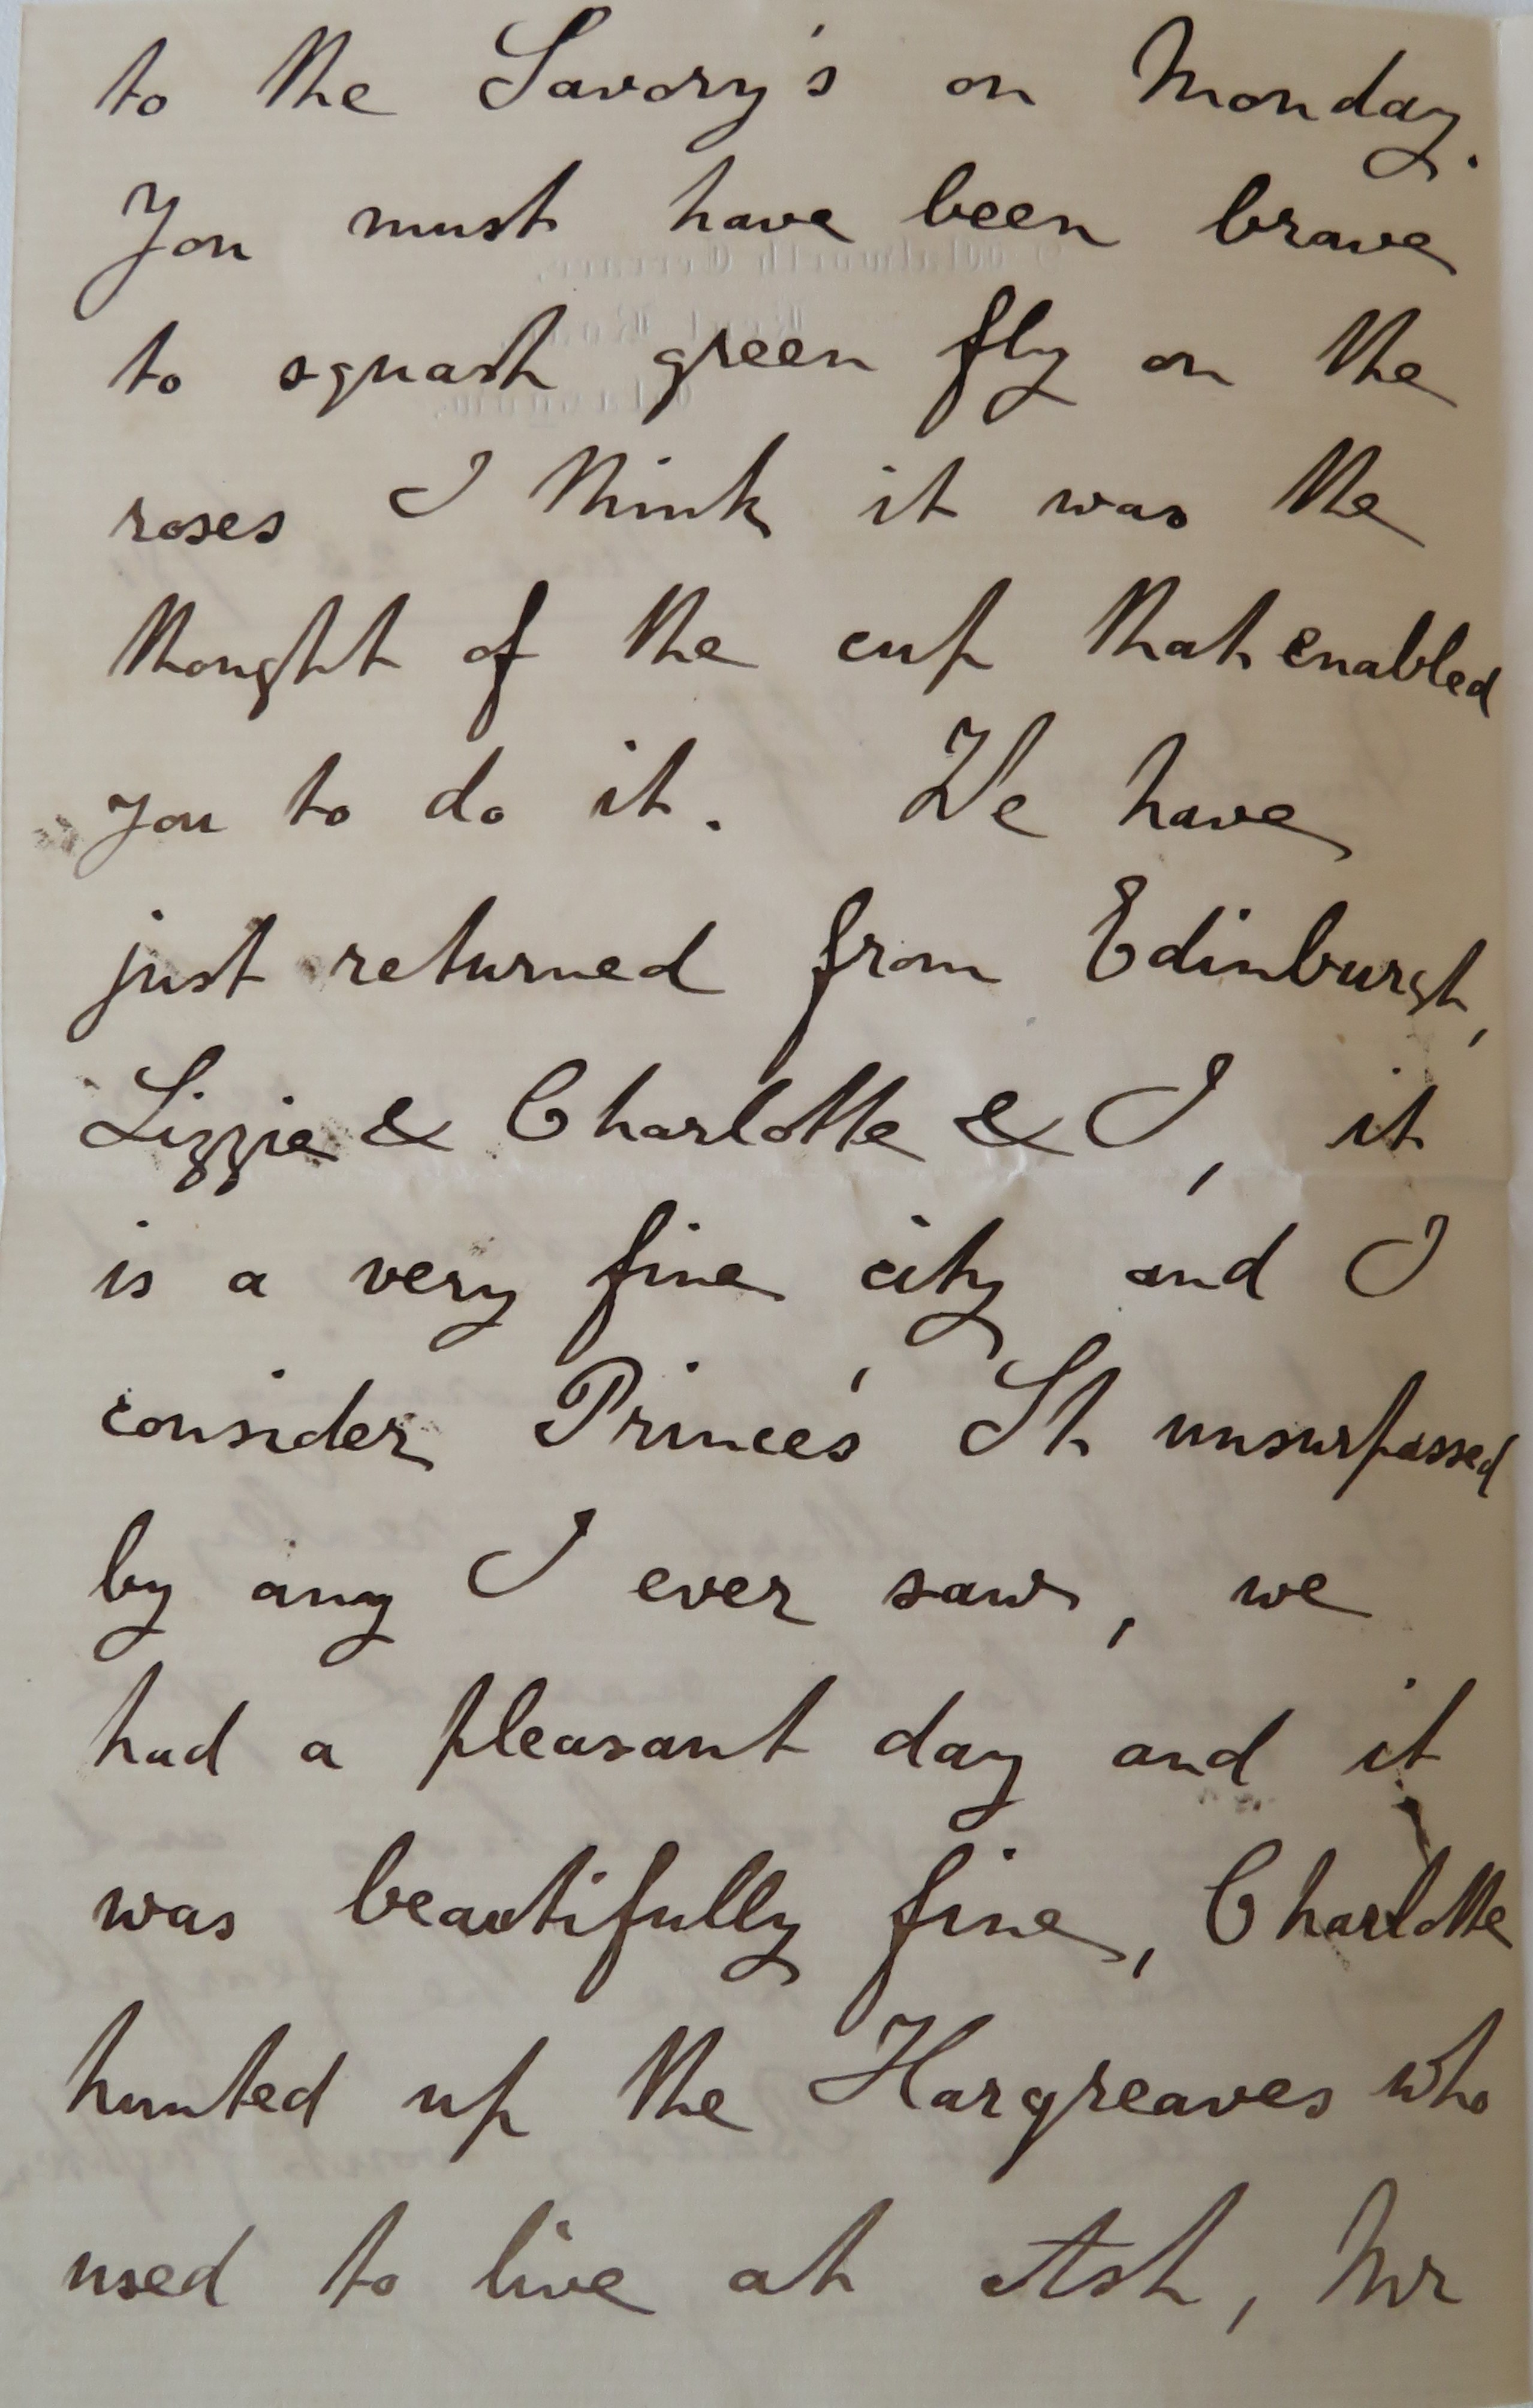 to the Savory's on Monday.
You must have been brave
to squash green fly on the
roses I think it was the
thought of the cup that enabled
you to do it. We have
just returned from Edinburgh,
Lizzie & Charlotte & I, it
is a very fine city and I
consider Prince's St unsurpassed
by any I ever saw, we
had a pleasant day and it
was beautifully fine, Charlotte
hunted up the Hargreaves who
used to live at Ash, Mr